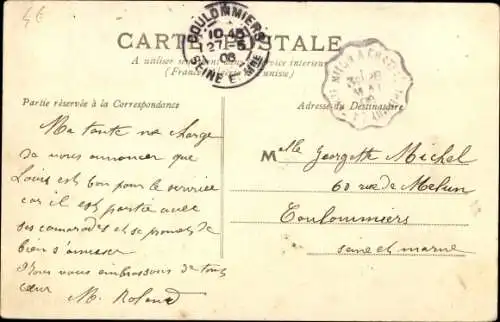 4€
CARTE POSTALE
A utiliser service intérieur
(France Tunisie)
COULOMMIERS
10 40
27-5
08
SEINE ET MNE
Partie réservée à la Correspondance
Adresse du Destinataire
Ma tante me charge
de vous annoncer que
Louis est bon pour le service
car il est partie avec
ses camarades et se promet de
bien s'amuser
Nous vous embrassons de tout
cœur
M. Roland
Melle Georgette Michel
60 rue de Melun
Coulommiers
seine et marne